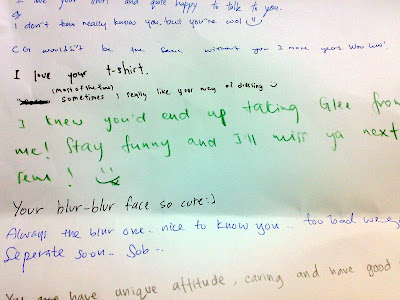 I love your and quite happy to talk to you.
I don't know really know you, but you're cool
CG wouldn't be the same without you 2 more years. Woo hoo!
I love your t-shirt.
(most of the time)
sometimes I really like your way of dressing
I knew you'd end up taking Glee from
me! Stay funny and I'll miss ya next
sem!
Your blur-blur face so cute:]
Always the blur one.. nice to know you.. too bad we
Seperate soon.. Sob..
You have unique attitude, caring and have good